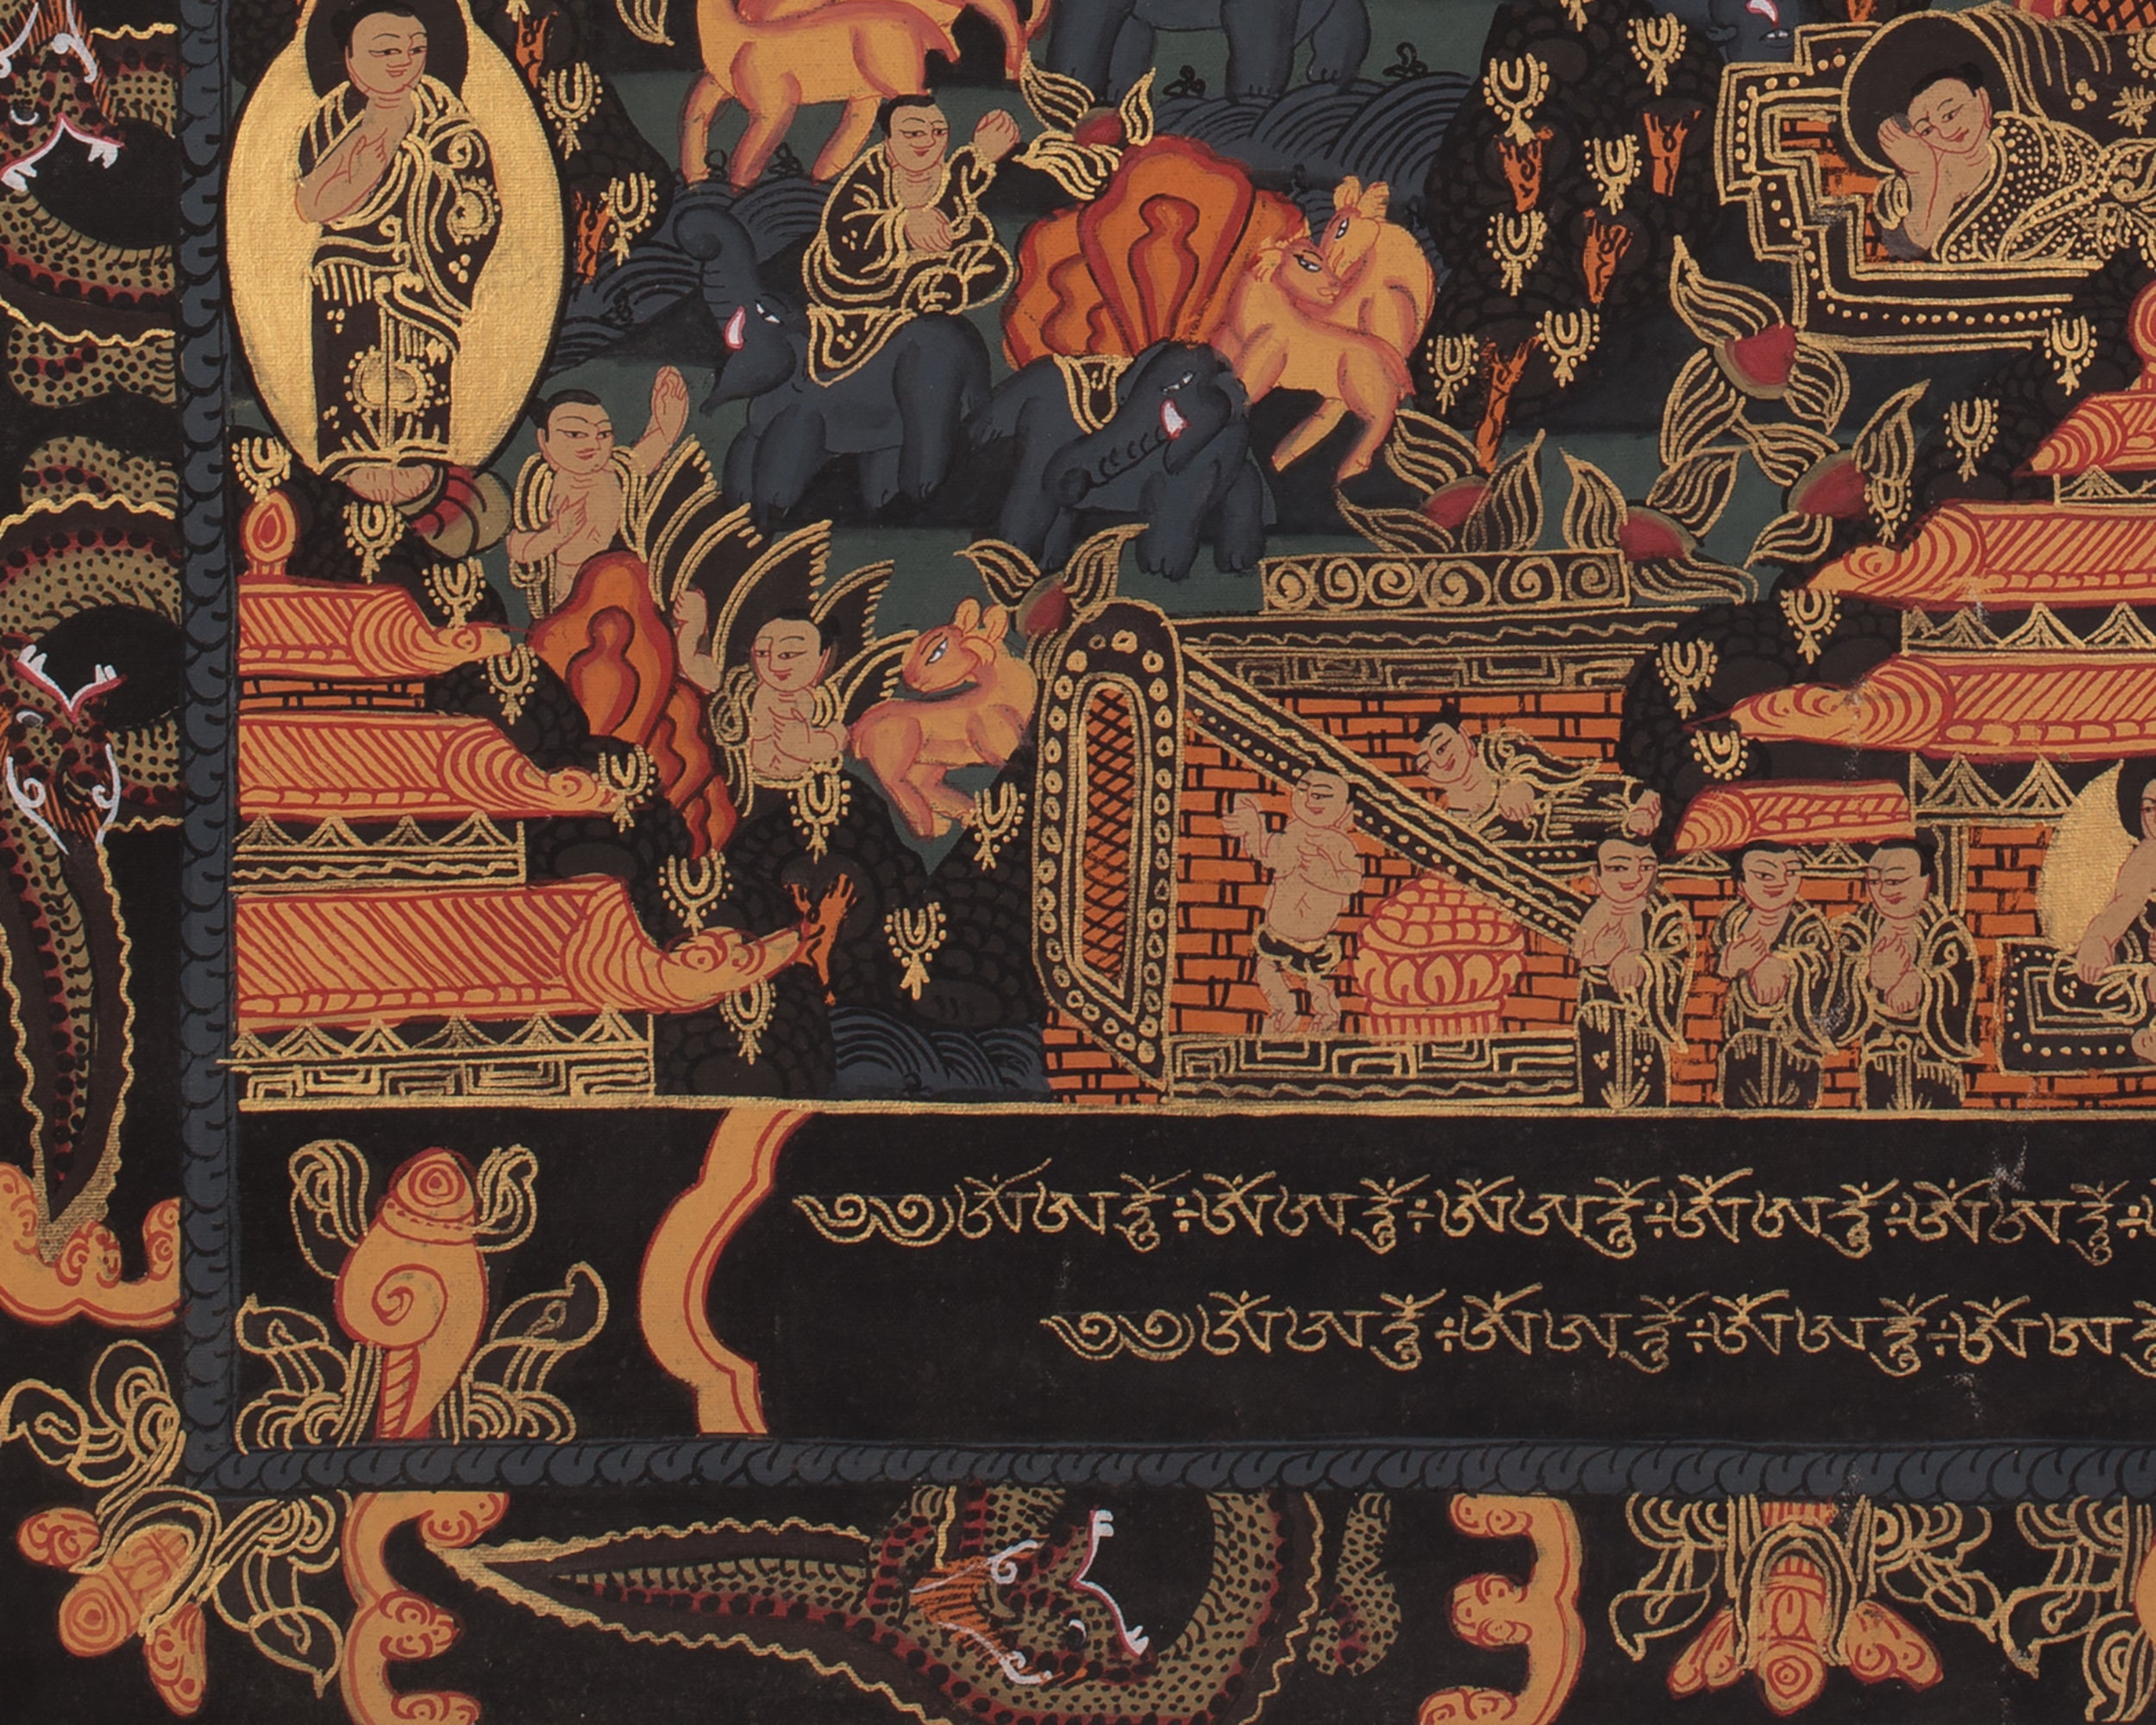 ༄༅ཨོཾཨཧཱུྃ༔ཨོཾཨཧཱུྃ༔ཨོཾཨཧཱུྃ༔ཨོཾཨཧཱུྃ༔ཨོཾཨཧཱུྃ༔
༄༅ཨོཾཨཧཱུྃ༔ཨོཾཨཧཱུྃ༔ཨོཾཨཧཱུྃ༔ཨོཾཨ